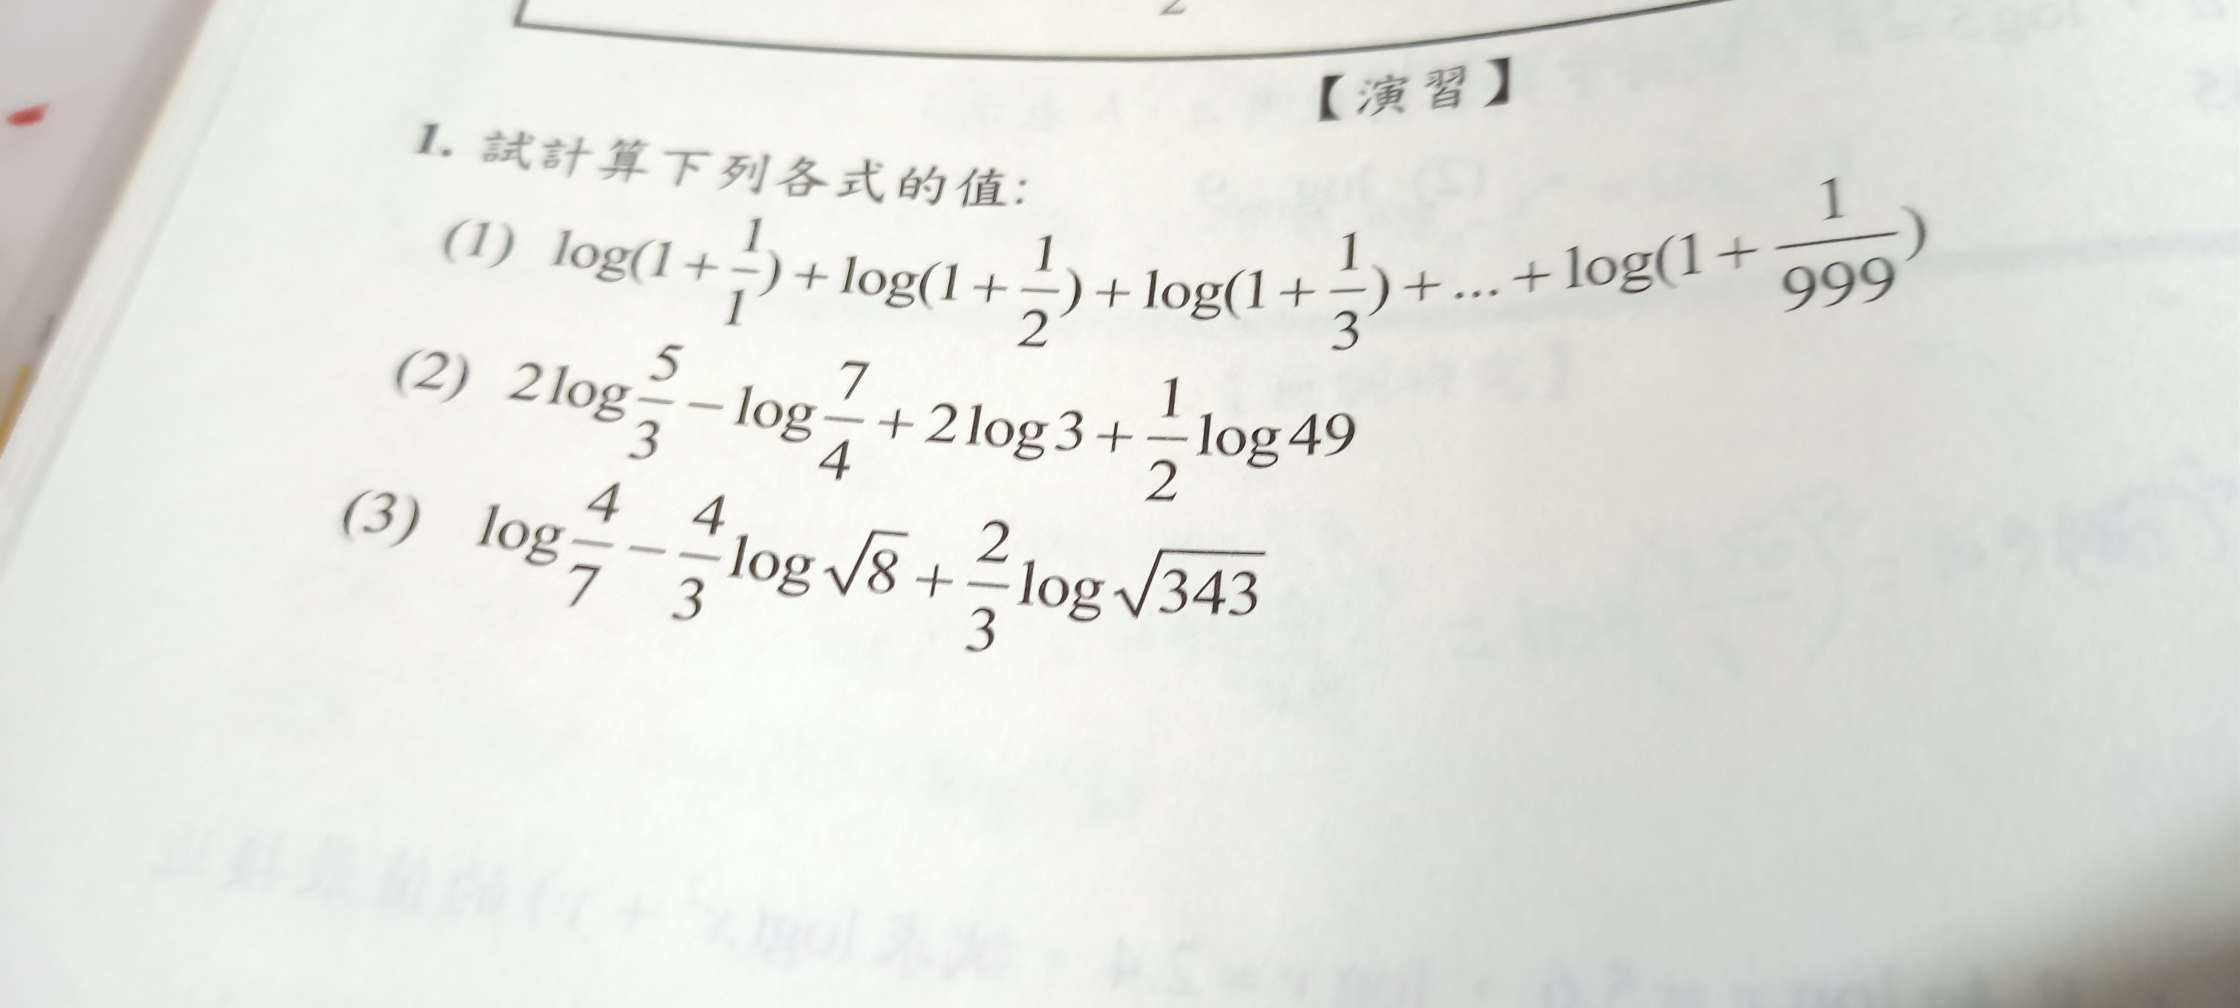 【演習】
1. 試計算下列各式的值:
(1) log(1+1/1)+log(1+1/2)+log(1+1/3)+...+log(1+1/999)
(2) 2log 5/3 − log 7/4 + 2log3 + 1/2 log49
(3) log 4/7 − 4/3 log√8 + 2/3 log√343